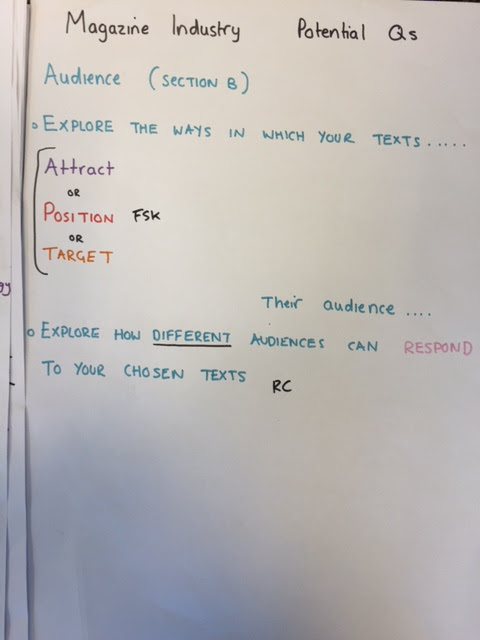 Magazine Industry Potential Qs
Audience (SECTION B)
EXPLORE THE WAYS IN WHICH YOUR TEXTS.....
Attract
OR
POSITION FSK
OR
TARGET
Their audience ....
EXPLORE HOW DIFFERENT AUDIENCES CAN RESPOND
TO YOUR CHOSEN TEXTS RC